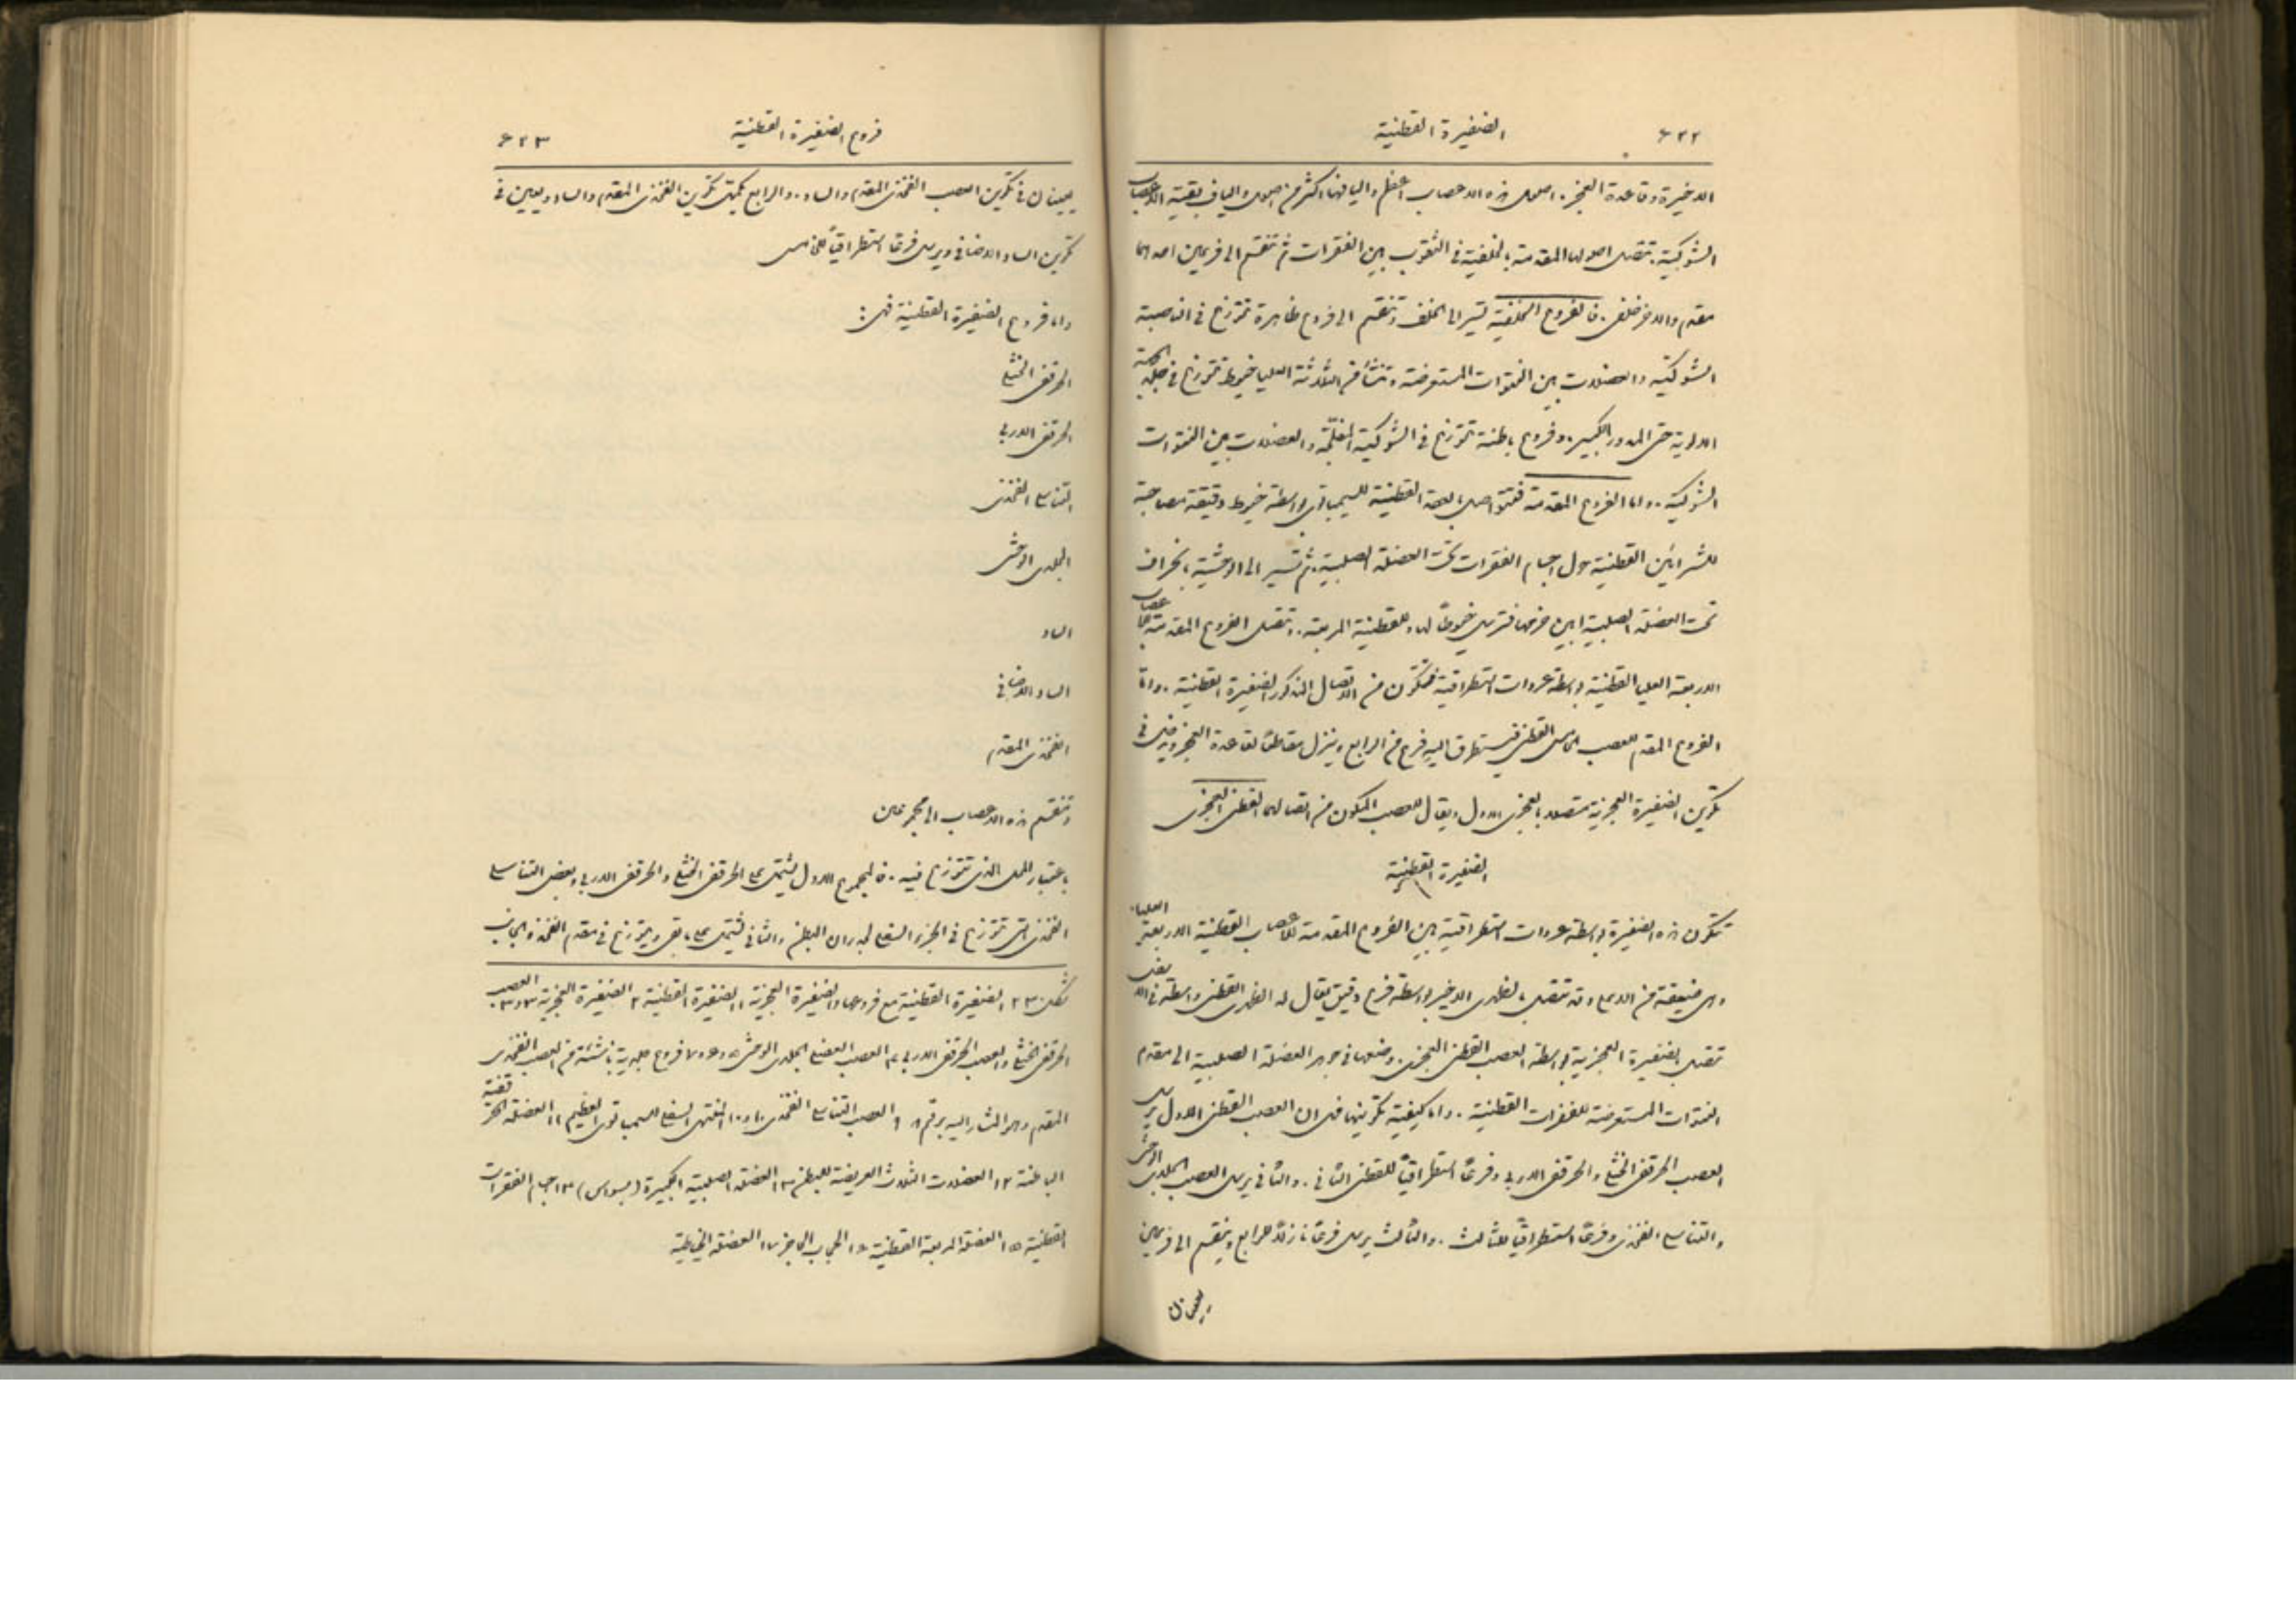 ٦٢٢ الضفيرة القطنية
الاخيرة وقاعدة العجز. اصول هذه الاعصاب اعظم واليافها اكثر من اصول والياف بقية الاعصاب
الشوكية. تتصل اصولها المقدمة بالخلفية في الثقوب بين الفقرات ثم تنقسم الى فرعين احدهما
مقدم والاخر خلفي. فالفروع الخلفية تسير الى الخلف وتنقسم الى فروع ظاهرة تتوزع في الناصبة
الشوكية والعضلات بين النتوات المستعرضة وتنشأ من الثلاثة العليا خيوط تتوزع في جلد الجهة
الالوية حتى المدور الكبير. وفروع باطنة تتوزع في الشوكية المفلجة والعضلات بين النتوات
الشوكية. واما الفروع المقدمة فتتواصل بالعقد القطنية للسيمباتوي بواسطة خيوط دقيقة مصاحبة
للشرايين القطنية حول اجسام الفقرات تحت العضلة الصلبية. ثم تسير الى الوحشية بانحراف
تحت العضلة الصلبية او بين حزمها فترسل خيوطاً لها وللقطنية المربعة. وتتصل الفروع المقدمة للاعصاب
الاربعة العليا القطنية بواسطة عروات استطراقية فتتكون من الاتصال المذكور الضفيرة القطنية. واما
الفروع المقدم للعصب الخامس القطني فيستطرق اليه فرع من الرابع وينزل مقاطعاً لقاعدة العجز ويدخل في
تكوين الضفيرة العجزية متصلا بالعجزي الاول ويقال للعصب المكون من اتصالهما القطني العجزي
الضفيرة القطنية
تتكون هذه الضفيرة بواسطة عروات استطراقية بين الفروع المقدمة للاعصاب القطنية الاربعة العليا.
وهي ضيقة من الاعلى وقد تتصل بالظهري الاخير بواسطة فرع دقيق يقال له الظهري القطني واسعة في الاسفل
تتصل بالضفيرة العجزية بواسطة العصب القطني العجزي. وضعها في جوهر العضلة الصلبية الى مقدم
النتوات المستعرضة للفقرات القطنية. واما كيفية تكوينها فهي ان العصب القطني الاول يرسل
العصب الحرقفي الخثلي والحرقفي الاربي وفرعاً استطراقياً للقطني الثاني. والثاني يرسل العصب الجلدي الوحشي
والتناسلي الفخذي وفرعاً استطراقياً للثالث. والثالث يرسل فرعاً نازلاً للرابع وينقسم الى فرعين
يعينان
فروع الضفيرة القطنية ٦٢٣
يعينان في تكوين العصب الفخذي المقدم والساد. والرابع يكمل تكوين الفخذي المقدم والساد ويعين في
تكوين الساد الاضافي ويرسل فرعاً استطراقياً للخامس
واما فروع الضفيرة القطنية فهي:
الحرقفي الخثلي
الحرقفي الاربي
التناسلي الفخذي
الجلدي الوحشي
الساد
الساد الاضافي
الفخذي المقدم
وتنقسم هذه الاعصاب الى مجموعين
باعتبار المحل الذي تتوزع فيه. فالمجموع الاول يشتمل على الحرقفي الخثلي والحرقفي الاربي وبعض التناسلي
الفخذي التي تتوزع في الجزء السفلي لجدران البطن والثاني يشتمل على ما بقي ويتوزع في مقدم الفخذ والجانب
شكل ٢٣٠ الضفيرة القطنية مع فروعها والضفيرة العجزية ١ الضفيرة القطنية ٢ الضفيرة العجزية ٣ و٣ العصب
الحرقفي الخثلي والعصب الحرقفي الاربي ٤ العصب العضلي الجلدي الوحشي ٥ و٦ و٧ فروع جلدية ناشئة من العصب الفخذي
المقدم وهو المشار اليه برقم ٨ ٩ والعصب التناسلي الفخذي ١٠ و١٠ المنتهى السفلي للسيمباتوي العظيم ١١ العضلة الحرقفية
الباطنة ١٢ العضلات الثلاث العريضة للبطن ١٣ العضلة الصلبية الكبيرة (بسواس) ١٤ اجسام الفقرات
القطنية ١٥ العضلة المربعة القطنية ١٦ الحجاب الحاجز ١٧ العضلة الخياطية